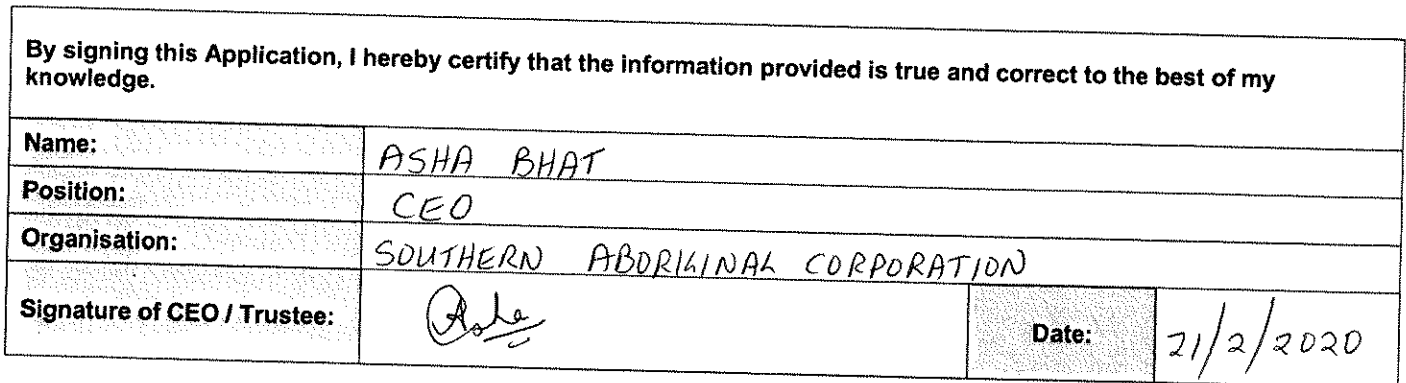 By signing this Application, I hereby certify that the information provided is true and correct to the best of my
knowledge.
Name: ASHA BHAT
Position: CEO
Organisation: SOUTHERN ABORIGINAL CORPORATION
Signature of CEO / Trustee: Asha
Date: 21/2/2020